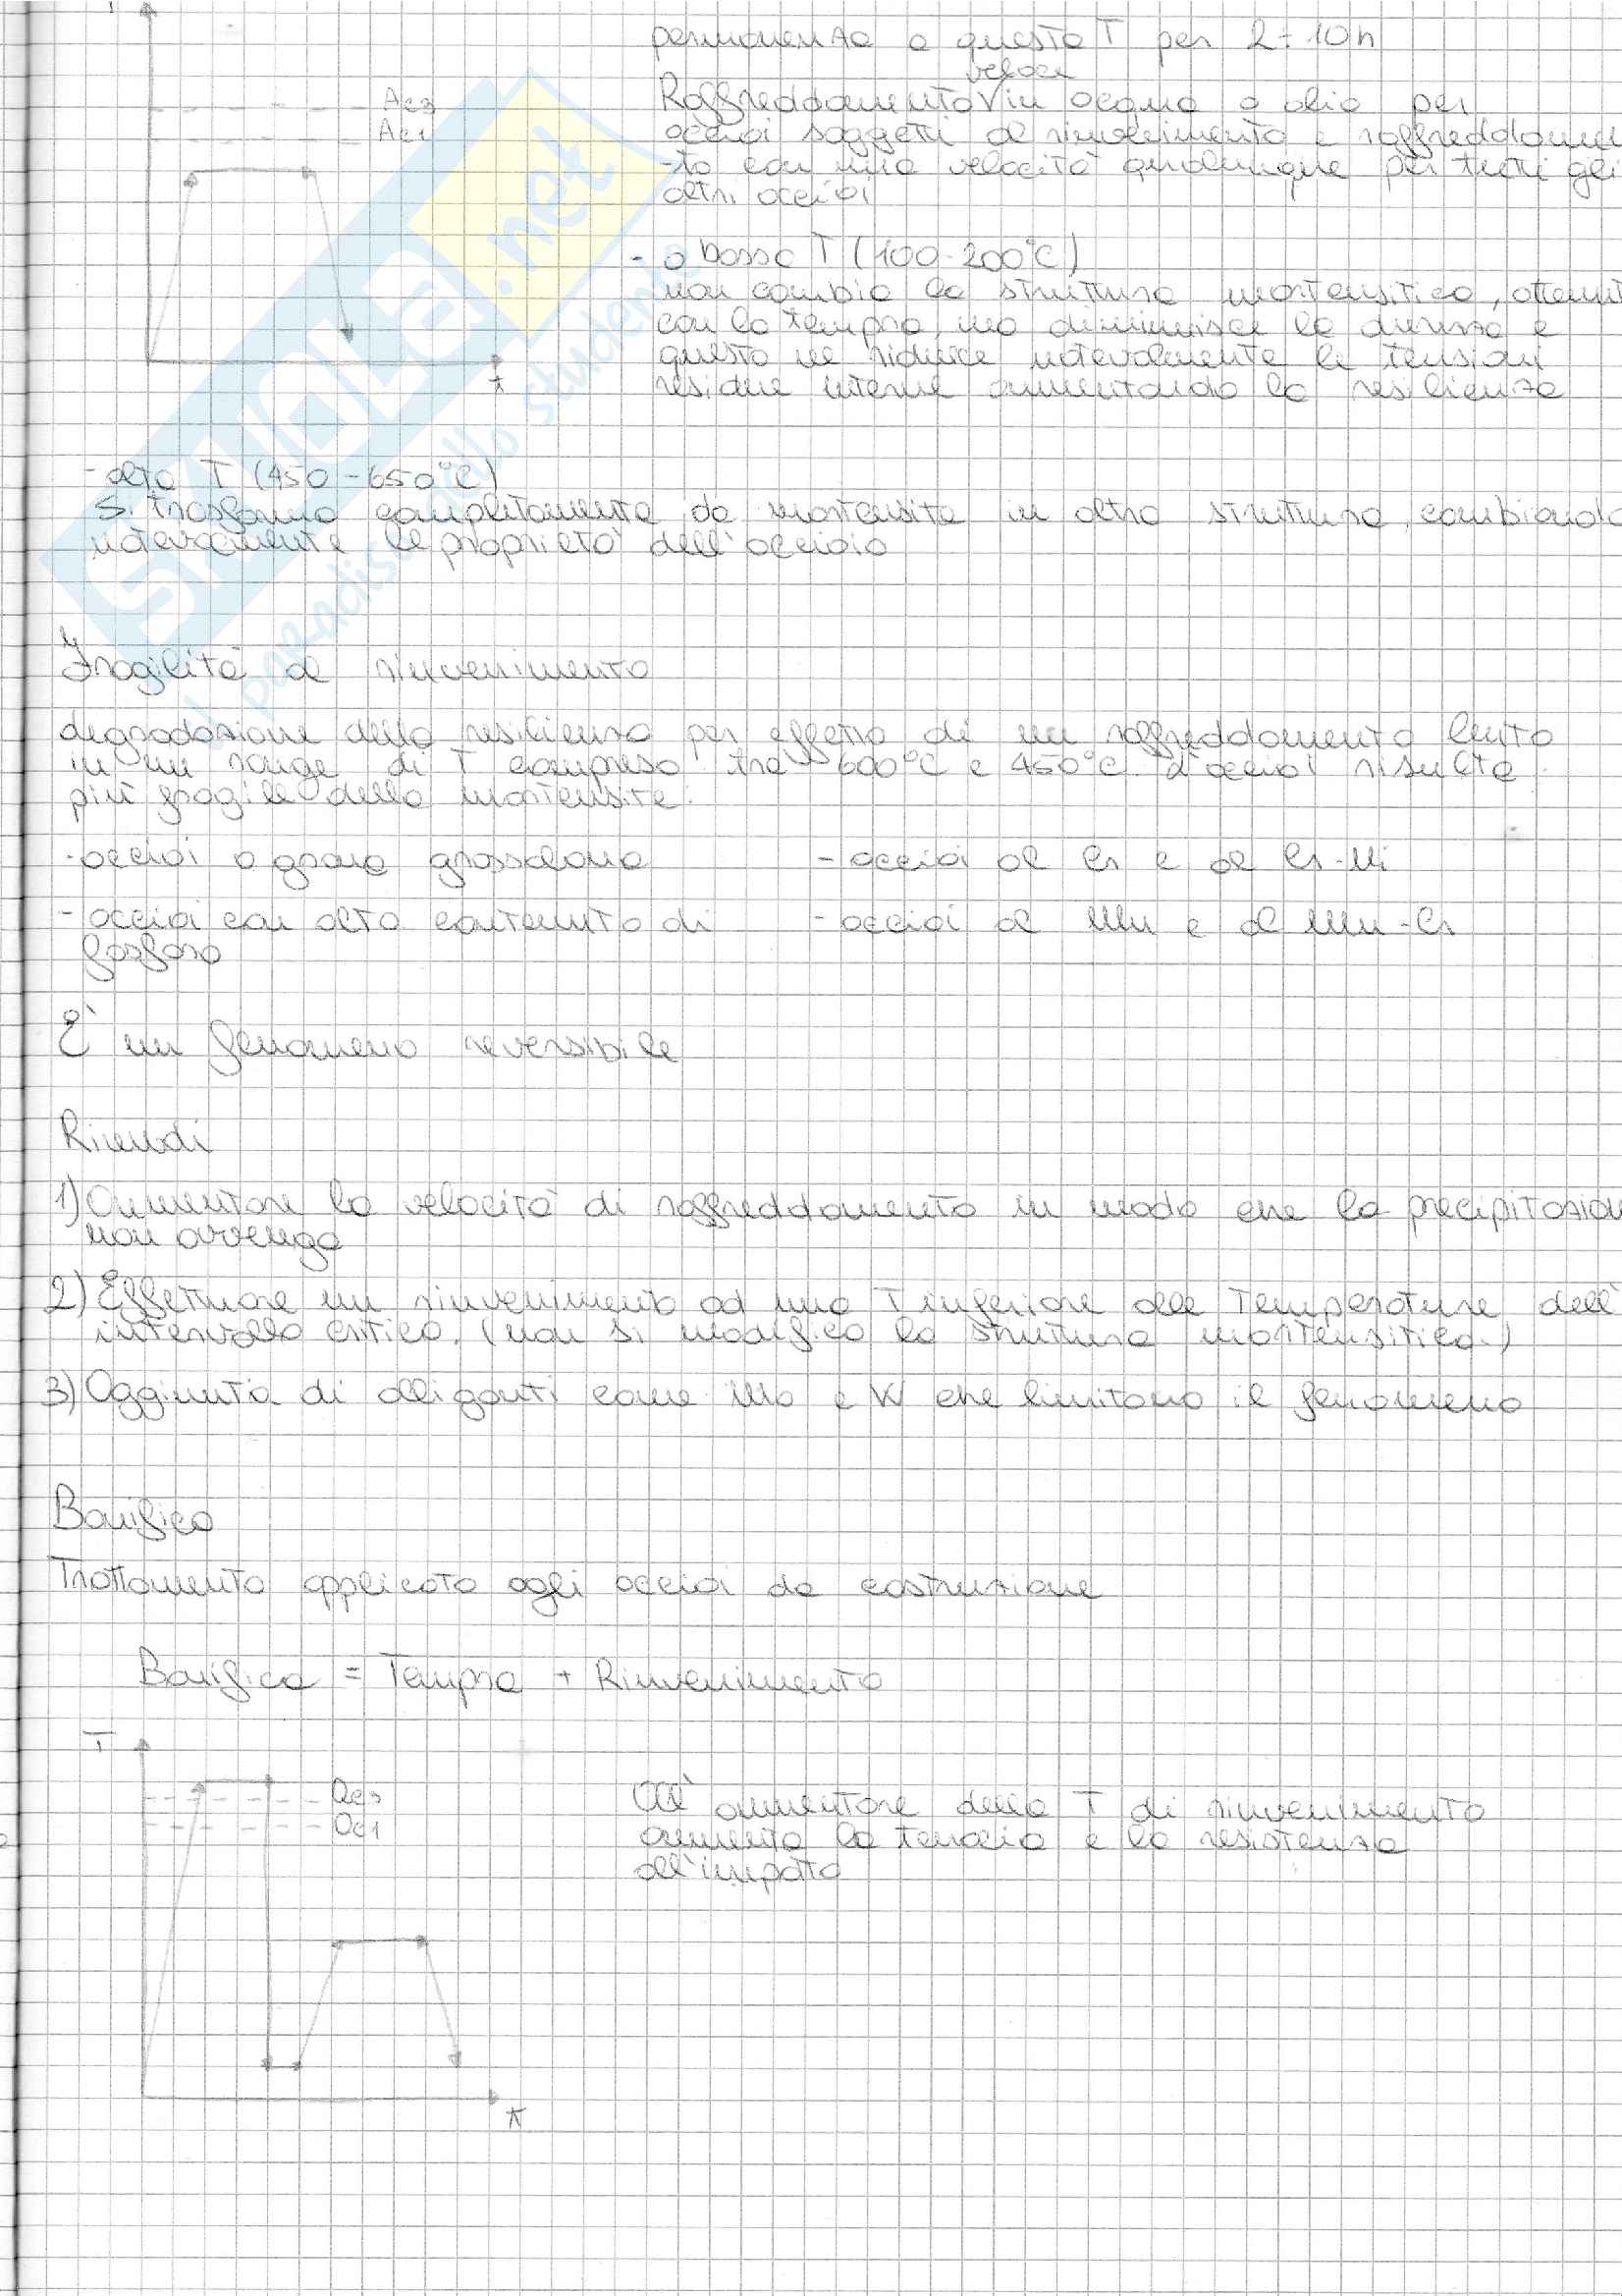 T
Ac3
Ac1
t
permanenza a questa T per 2÷10h
veloce
Raffreddamento V in acqua o olio per
acciai soggetti al rinvenimento e raffreddamen
-to con una velocità qualunque per tutti gli
altri acciai
- a bassa T (100-200°C)
non cambia la struttura martensitica, ottenut
con la tempra, ma diminuisce la durezza e
questo ne riduce notevolmente le tensioni
residue interne aumentando la resilienza
- alta T (450-650°C)
Si trasforma completamente da martensite in altra struttura, cambiando
notevolmente le proprietà dell'acciaio
Fragilità al rinvenimento
degradazione della resilienza per effetto di un raffreddamento lento
in un range di T compreso tra 600°C e 450°C. L'acciaio risulta
più fragile della martensite.
- acciai a grano grossolano
- acciai al Cr e al Cr-Ni
- acciai con alto contenuto di
fosforo
- acciai al Mn e al Mn-Cr
È un fenomeno reversibile
Rimedi
1) Aumentare la velocità di raffreddamento in modo che la precipitazion
non avvenga
2) Effettuare un rinvenimento ad una T inferiore alle temperature dell'
intervallo critico. (non si modifica la struttura martensitica.)
3) Aggiunta di alliganti come Mo e W che limitano il fenomeno
Bonifica
Trattamento applicato agli acciai da costruzione
Bonifica = Tempra + Rinvenimento
T
Ac3
Ac1
t
All'aumentare della T di rinvenimento
aumenta la tenacia e la resistenza
all'impatto
SKUOLA.net
il paradiso dello studente